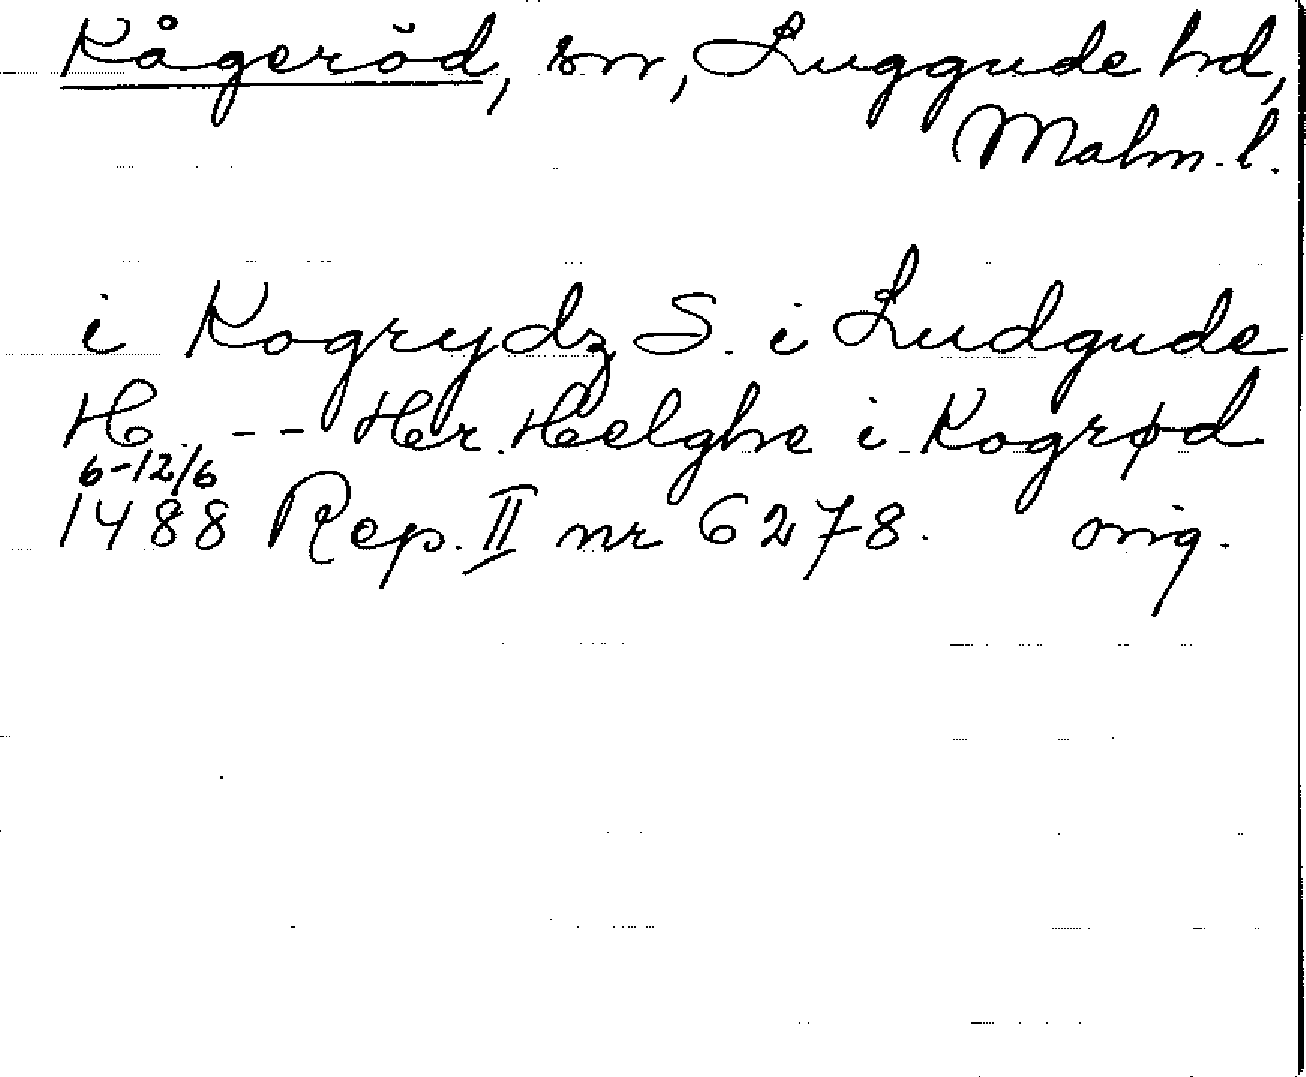 Kågeröd, sn, Luggude hd,
Malm. l.
i Kogrydz S. i Ludgude
H. -- Her Helghe i Kogrød
6-12/6
1488 Rep. II nr 6278. orig.